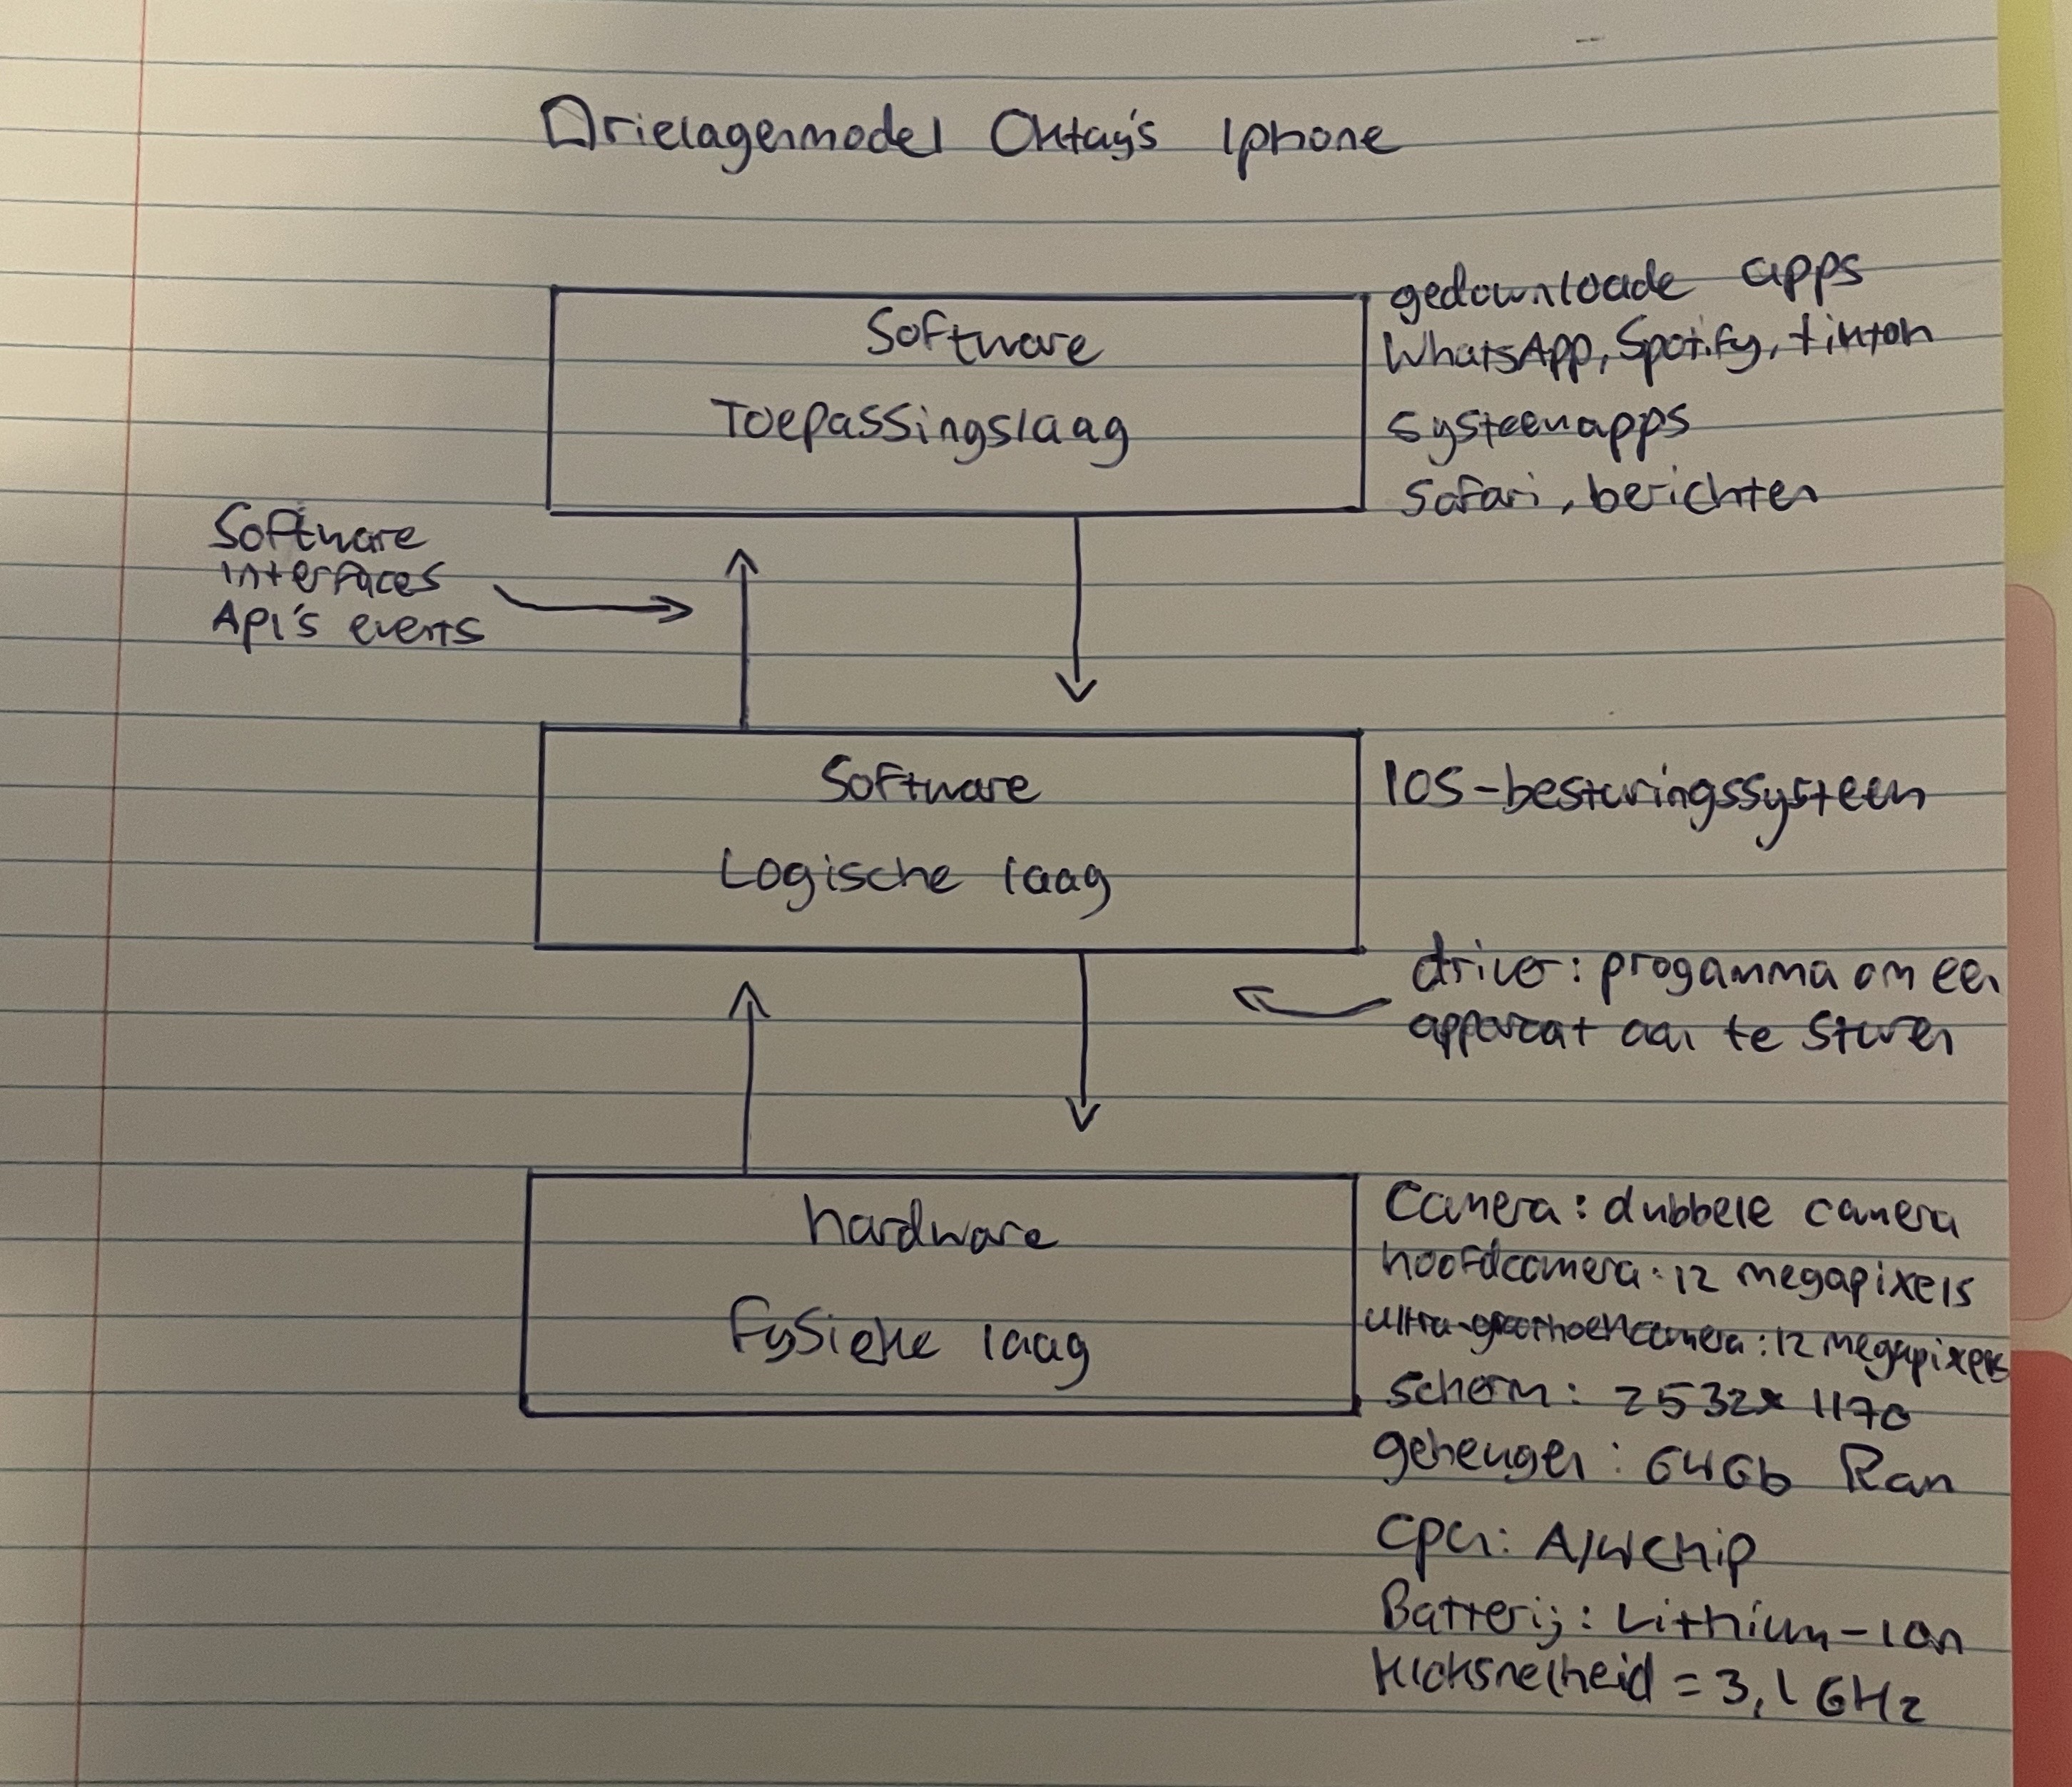 Drielagenmodel Oktay's Iphone
gedownloade apps
WhatsApp, Spotify, tiktok
systeemapps
Safari, berichten
Software
Toepassingslaag
Software
interfaces
Api's events
Software
Logische laag
IOS-besturingssysteem
driver: progamma om een
apparaat aan te sturen
hardware
fysieke laag
Camera: dubbele camera
hoofdcamera: 12 megapixels
ultra-groothoekcamera: 12 megapixels
scherm: 2532x 1170
geheugen: 64Gb Ram
Cpu: A14chip
Batterij: Lithium-ion
Kloksnelheid = 3,1 GHz